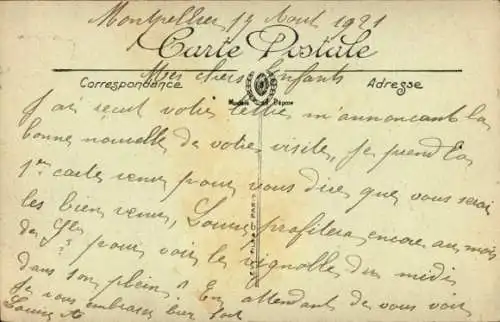 Montpellier 14 Aout 1921
Carte Postale
Mes chers Enfants
Correspondance
Adresse
Modèle Déposé
J'ai reçut votre lettre m'annoncant la
bonne nouvelle de votre visite, je prend la
1re carte venue pour vous dire que vous serai
les bien venus, Louis profitera encore au mois
de 7bre pour voir les vignobles du midi
dans son plein. En attendant de vous voir
Je vous embrasse bien fort
Louise